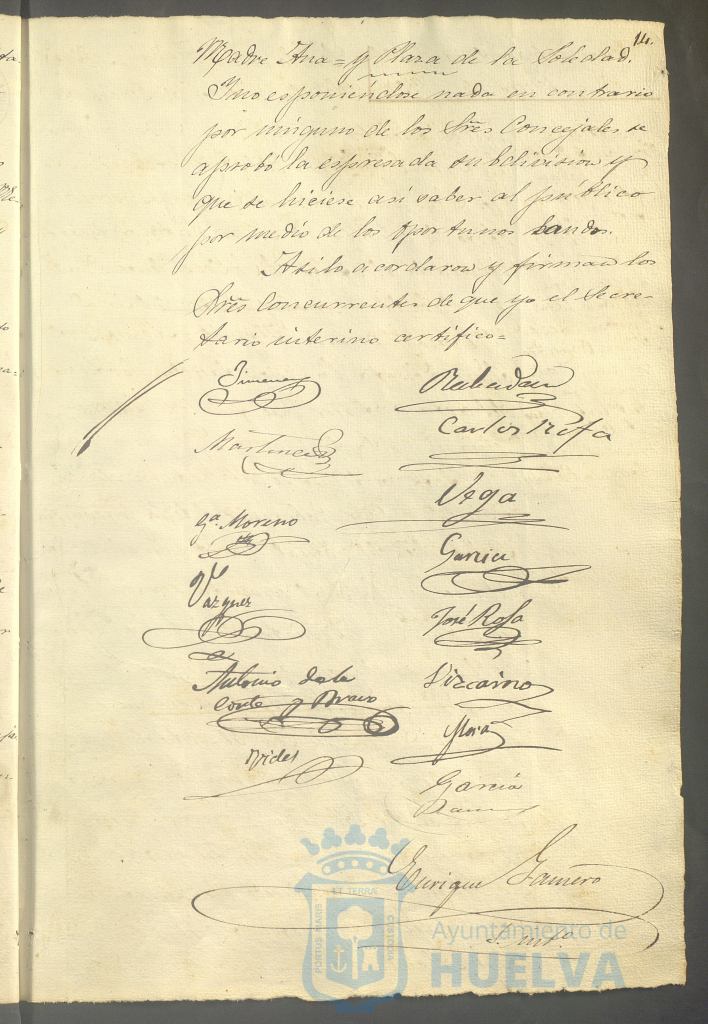 14.
Madre Ana = y Plaza de la Soledad.
Y no esponiéndose nada en contrario
por ninguno de los Sres Concejales se
aprobó la espresada subdivision y
que se hiciese asi saber al público
por medio de los oportunos bandos.
Asi lo acordaron y firman los
Sres Concurrentes de que yo el Secre-
tario interino certifico =
Jimenez
Rabadan
Martinez
Carlos
Vega
Ga. Moreno
Garcia
Vazquez
José Rosa
Antonio de la
Corte y Bravo
Vizcaino
Mora
Vides
García
Enrique
ET TERRAE
PORTUS MARIS
CUSTODIA
Ayuntamiento de
HUELVA